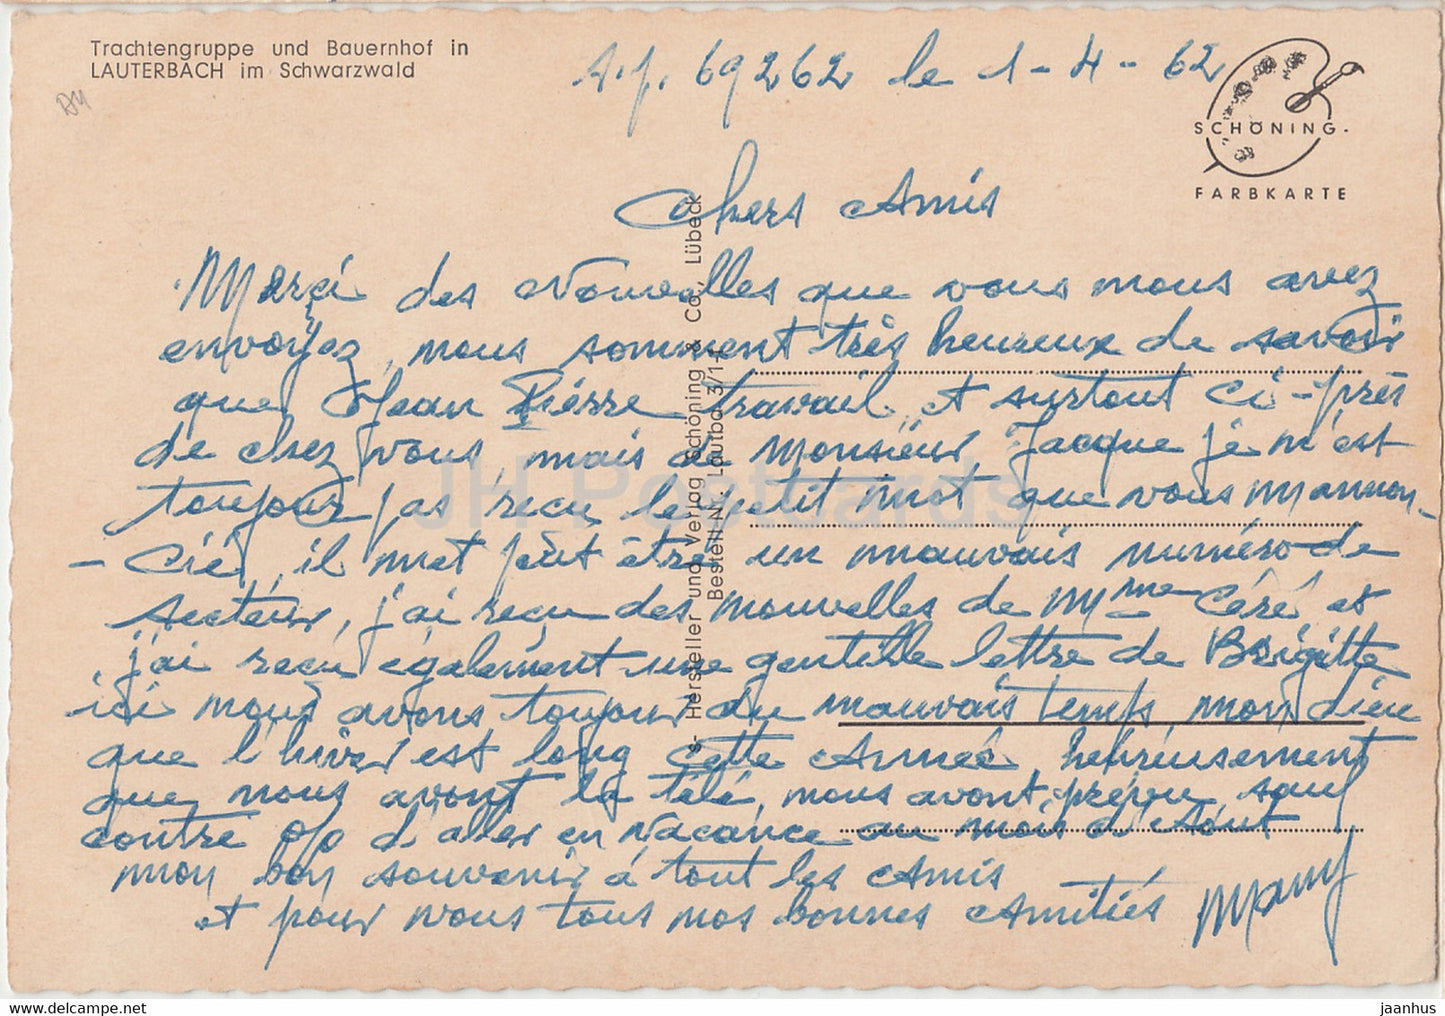 Trachtengruppe und Bauernhof in
LAUTERBACH im Schwarzwald
s.p. 69262 le 1-4-62
SCHÖNING-
FARBKARTE
Chers Amis
Merçi des Nouvelles que vous nous avez
envoyez, nous somment très heureux de savoir
que Jean Pierre travail, et surtout ci-près
de chez vous, mais de Monsieur Jacque je n'est
toujour pas reçu le petit mot que vous m'annon-
-cié, il met peut être un mauvais numéro de
secteur, j'ai reçu des nouvelles de Mme Céré et
j'ai reçu également une gentille lettre de Brigitte
ici nous avons toujour du mauvais temps, mon dieu
que l'hiver est long cette Année, heureusement
que nous avont la télé, nous avont prévu, sauf
contre o/o d'aller en vacance au mois d'Aout
mon bon souvenir à tout les Amis
et pour vous tous nos bonnes Amitiés Many
s- Hersteller und Verlag Schöning & Co., Lübeck
Bestell.Nr. Lautba 3/1-f
JH Postcards
www.delcampe.net
jaanhus